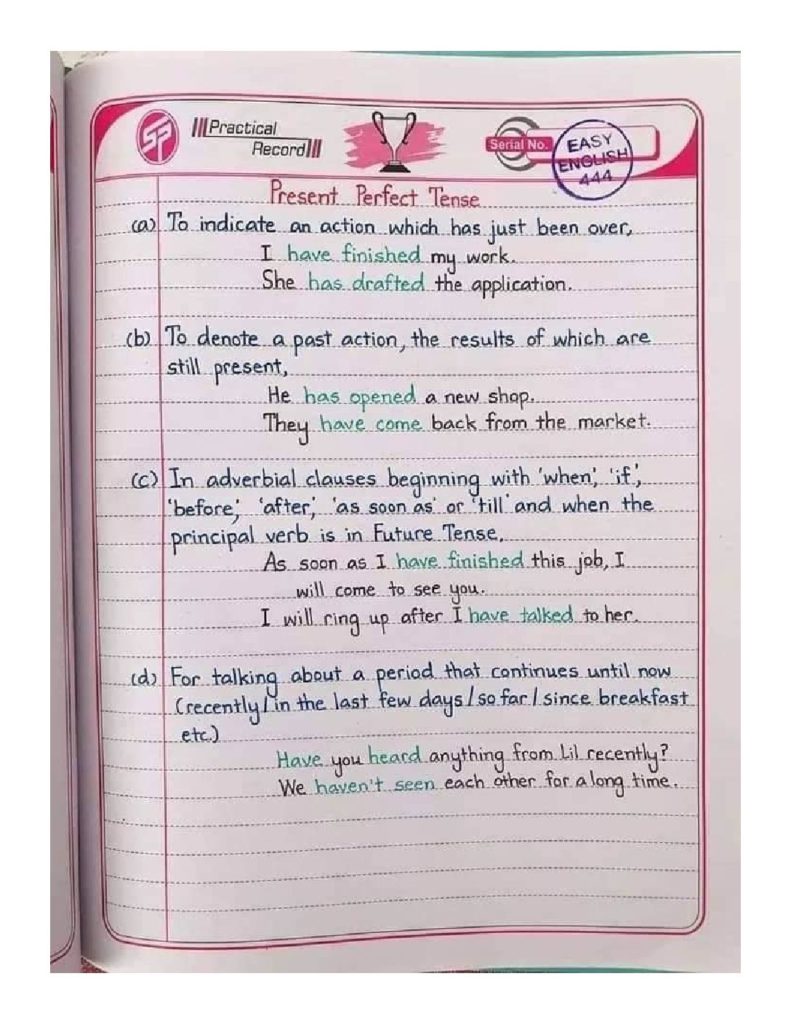 Practical
Record
Serial No.
EASY
ENGLISH
444
Present Perfect Tense
(a) To indicate an action which has just been over,
I have finished my work.
She has drafted the application.
(b) To denote a past action, the results of which are
still present,
He has opened a new shop.
They have come back from the market.
(c) In adverbial clauses beginning with 'when', 'if',
'before', 'after', 'as soon as' or 'till' and when the
principal verb is in Future Tense,
As soon as I have finished this job, I
will come to see you.
I will ring up after I have talked to her.
(d) For talking about a period that continues until now
(recently/in the last few days/so far/since breakfast
etc.)
Have you heard anything from Lil recently?
We haven't seen each other for a long time.